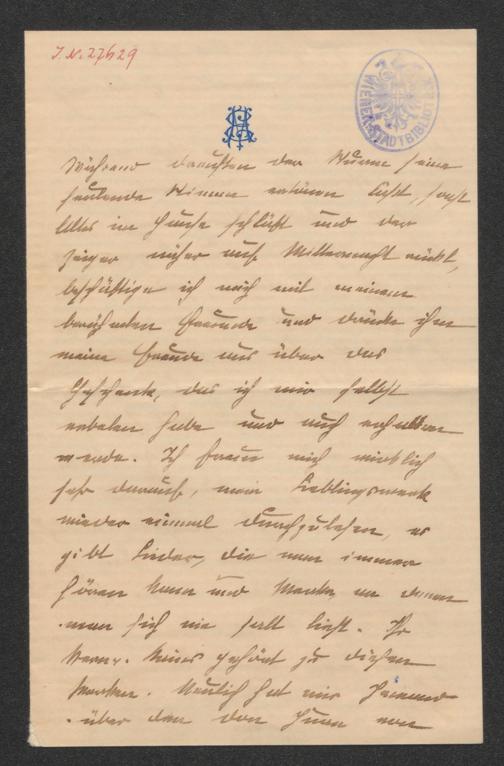 J.N. 27629
WIENER STADTBIBLIOTHEK
Während draußen der Sturm seine
heulende Stimme ertönen läßt, sonst
Alles im Hause schläft und der
Zeiger näher auf Mitternacht rückt,
beschäftige ich mich mit meinem
berühmten Freunde und drücke ihm
meine Freude aus über das
Geschenk, das ich mir selbst
erbeten habe und auch erhalten
werde. Ich freue mich wirklich
sehr darauf, mein Lieblingswerk
wieder einmal durchzulesen, es
gibt Lieder, die man immer
hören kann und Werke, an denen
man sich nie satt liest. Ihr
gehört zu diesen
Werken. Neulich hat mir Jemand
über den von